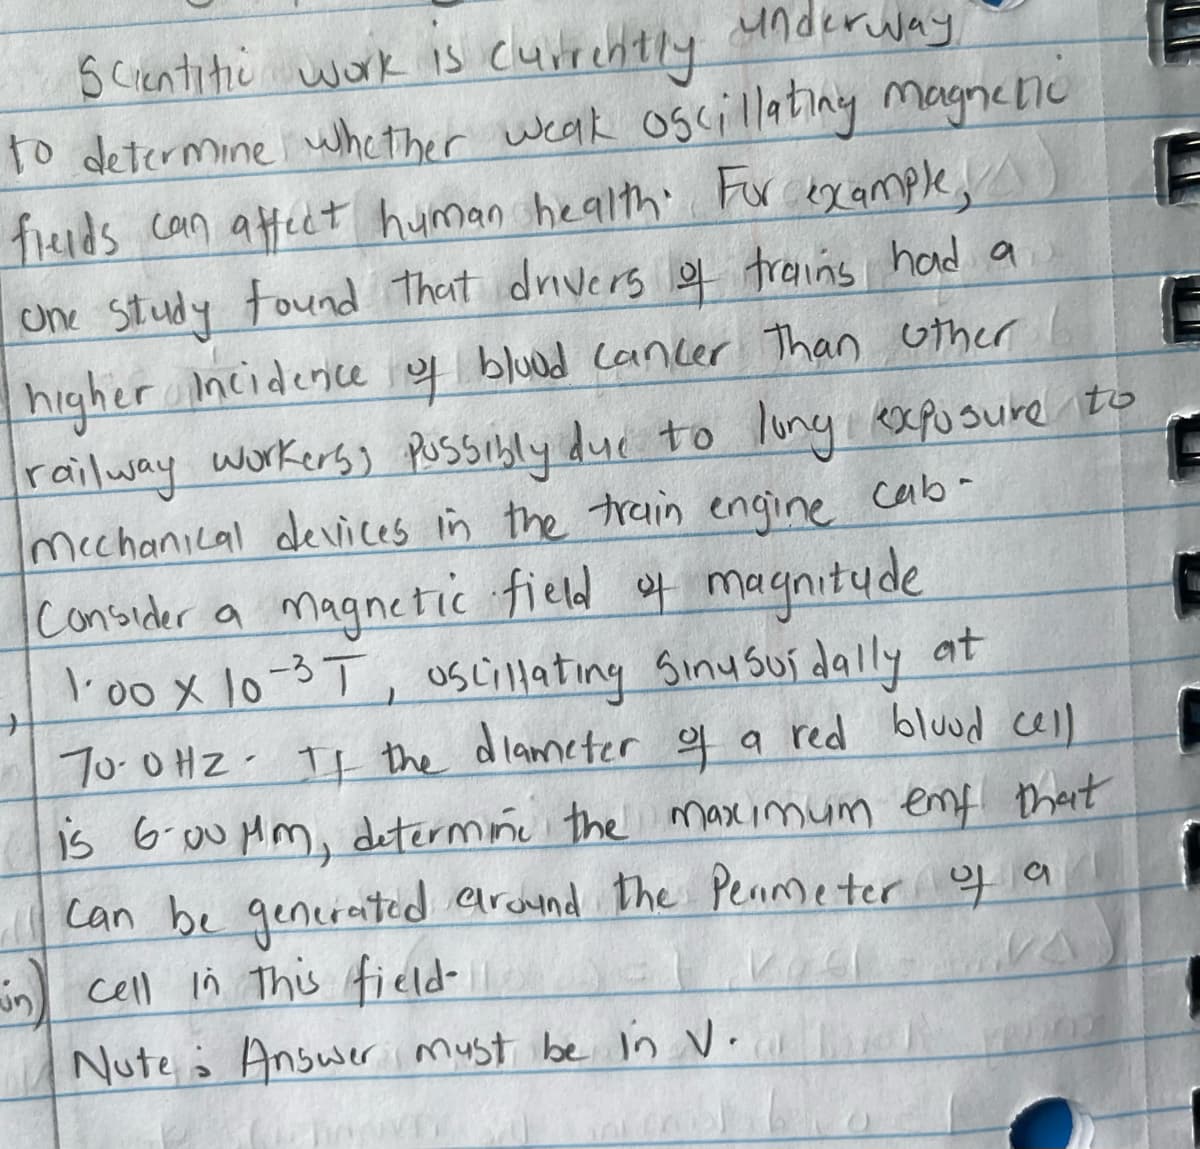 Scientific work is currently underway
to determine whether weak oscillating magnetic
fields can affect human health. For example,
one study found that drivers of trains had a
higher incidence of blood cancer than other
railway workers, possibly due to long exposure to
mechanical devices in the train engine cab.
Consider a magnetic field of magnitude
1.00 x 10^-3 T, oscillating sinusoidally at
70.0 HZ. If the diameter of a red blood cell
is 6.00 μm, determine the maximum emf that
can be generated around the perimeter of a
cell in this field.
Note: Answer must be in V.